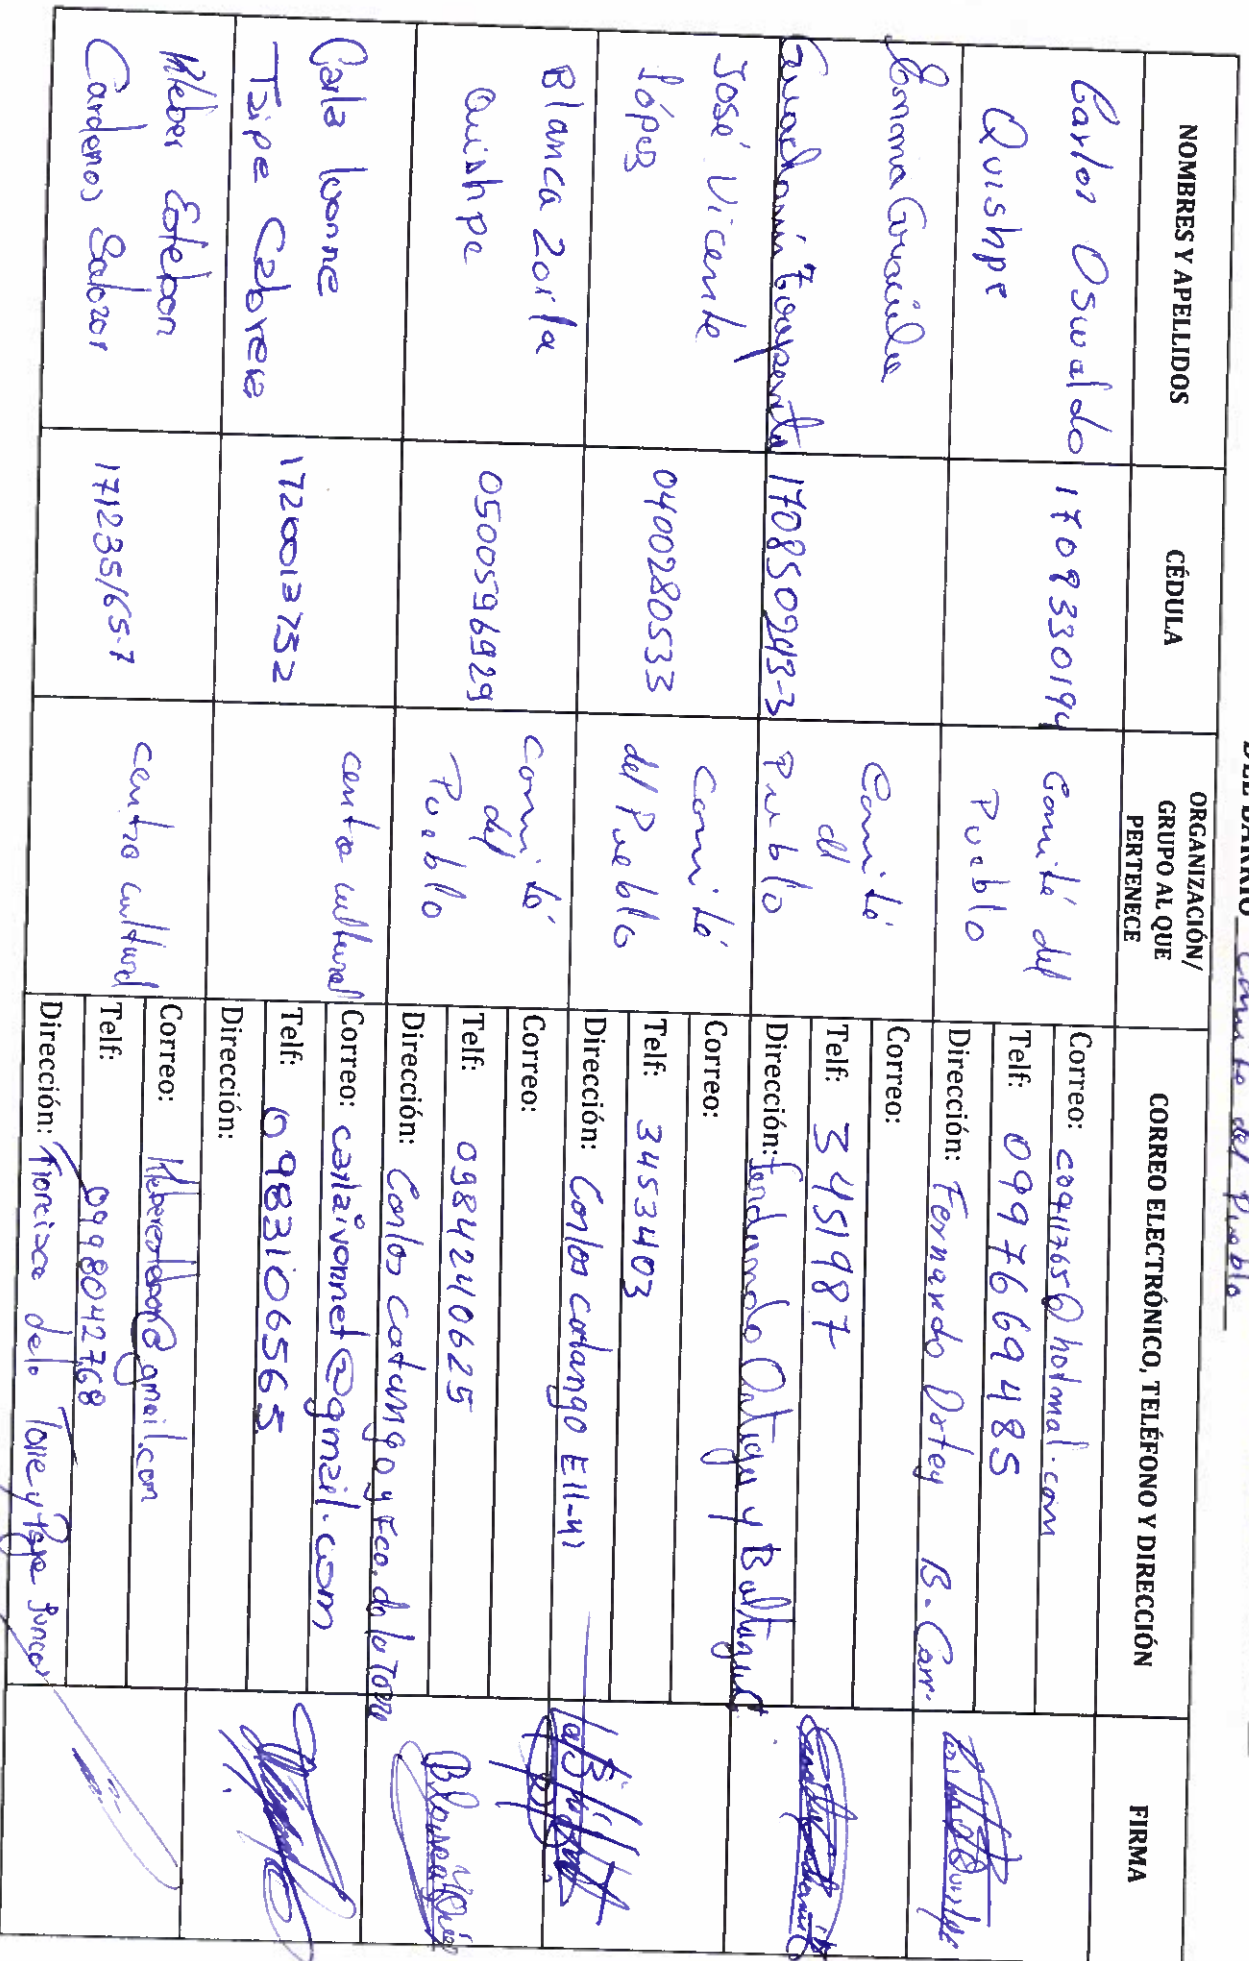 DEL BARRIO Comité del Pueblo
NOMBRES Y APELLIDOS
CÉDULA
ORGANIZACIÓN/
GRUPO AL QUE
PERTENECE
CORREO ELECTRÓNICO, TELÉFONO Y DIRECCIÓN
FIRMA
Carlos Oswaldo
Quishpe
1708330194
Comité del
Pueblo
Correo: coq11765@hotmal.com
Telf: 0997669485
Dirección: Fernando B. Carr.
Comité
del
Pueblo
170850943-3
Correo:
Telf: 3451987
Dirección: y
José Vicente
López
0400280533
Comité
del Pueblo
Correo:
Telf: 3453403
Dirección: Carlos Catango E11-41
Blanca Zoila
Quishpe
0500596929
Comité
del
Pueblo
Correo:
Telf: 0984240625
Dirección: Carlos Catango y Fco. de la Torre
Carla Ivonne
Taipe Cabrera
1720013752
centro cultural
Correo: carlaivonnet@gmail.com
Telf: 0983106565
Dirección:
Kleber Esteban
Cardenas Salazar
171235165-7
centro cultural
Correo: kleberesteban8@gmail.com
Telf: 0998042768
Dirección: de la Torre y